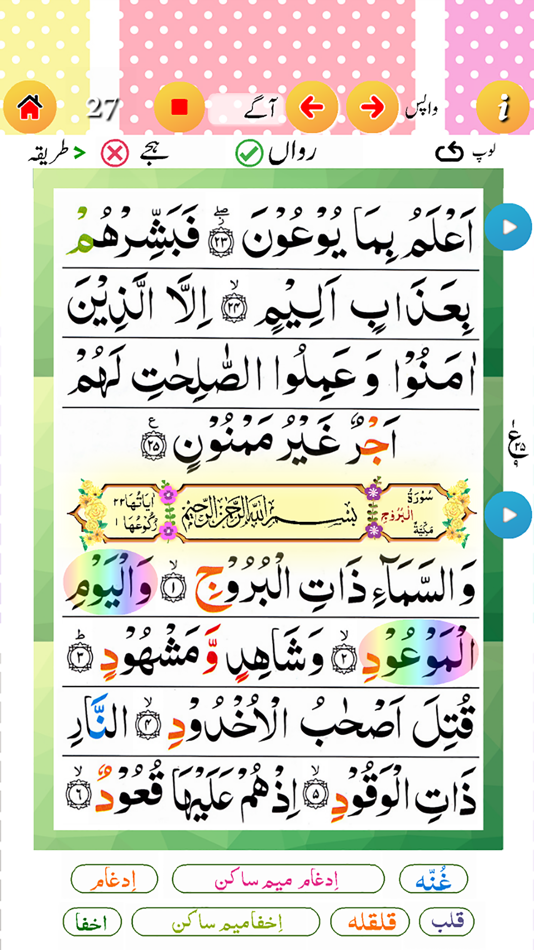 27 آگے واپس i
طریقہ < ہجے رواں لوپ
اَعْلَمُ بِمَا يُوْعُوْنَ ۖ۝۲۳ فَبَشِّرْهُمْ
بِعَذَابٍ اَلِيْمٍ ۙ۝۲۴ اِلَّا الَّذِيْنَ
اٰمَنُوْا وَعَمِلُوا الصّٰلِحٰتِ لَهُمْ
اَجْرٌ غَيْرُ مَمْنُوْنٍ ۝۲۵ ع
ع ۲۵ ۹
سُوْرَةُ الْبُرُوْجِ مَكِّيَّةٌ بِسْمِ اللّٰهِ الرَّحْمٰنِ الرَّحِيْمِ اٰيَاتُهَا ۲۲ رُكُوْعُهَا ۱
وَالسَّمَآءِ ذَاتِ الْبُرُوْجِ ۙ۝۱ وَالْيَوْمِ
الْمَوْعُوْدِ ۙ۝۲ وَشَاهِدٍ وَّمَشْهُوْدٍ ؕ۝۳
قُتِلَ اَصْحٰبُ الْاُخْدُوْدِ ۙ۝۴ النَّارِ
ذَاتِ الْوَقُوْدِ ۙ۝۵ اِذْهُمْ عَلَيْهَا قُعُوْدٌ ۙ۝۶
غُنّه اِدغام میم ساکن اِدغام
قلب قلقله اِخفامیم ساکن اخفا